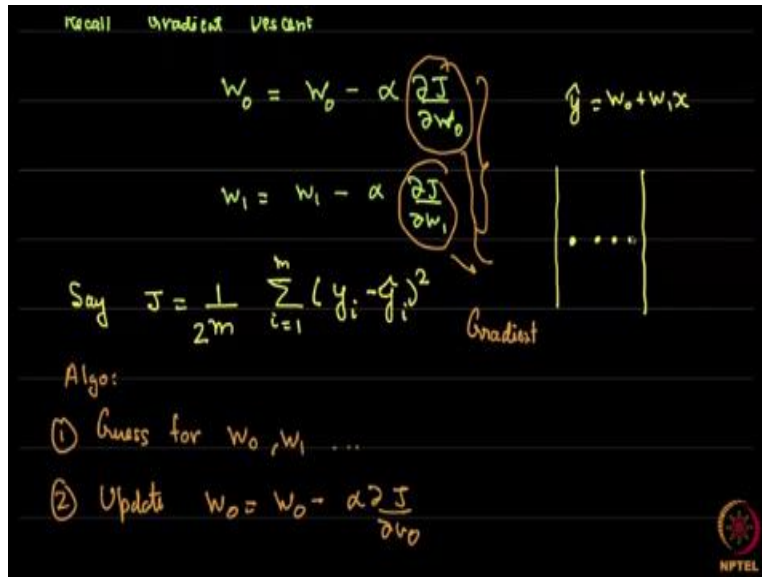 Recall Gradient Descent
W₀ = W₀ - α ∂J/∂W₀
ŷ = W₀ + W₁x
W₁ = W₁ - α ∂J/∂W₁
Say J = 1/2m Σ_{i=1}^{m} (yᵢ - ŷᵢ)²
Gradient
Algo:
① Guess for W₀, W₁ ...
② Update W₀ = W₀ - α ∂J/∂W₀
NPTEL